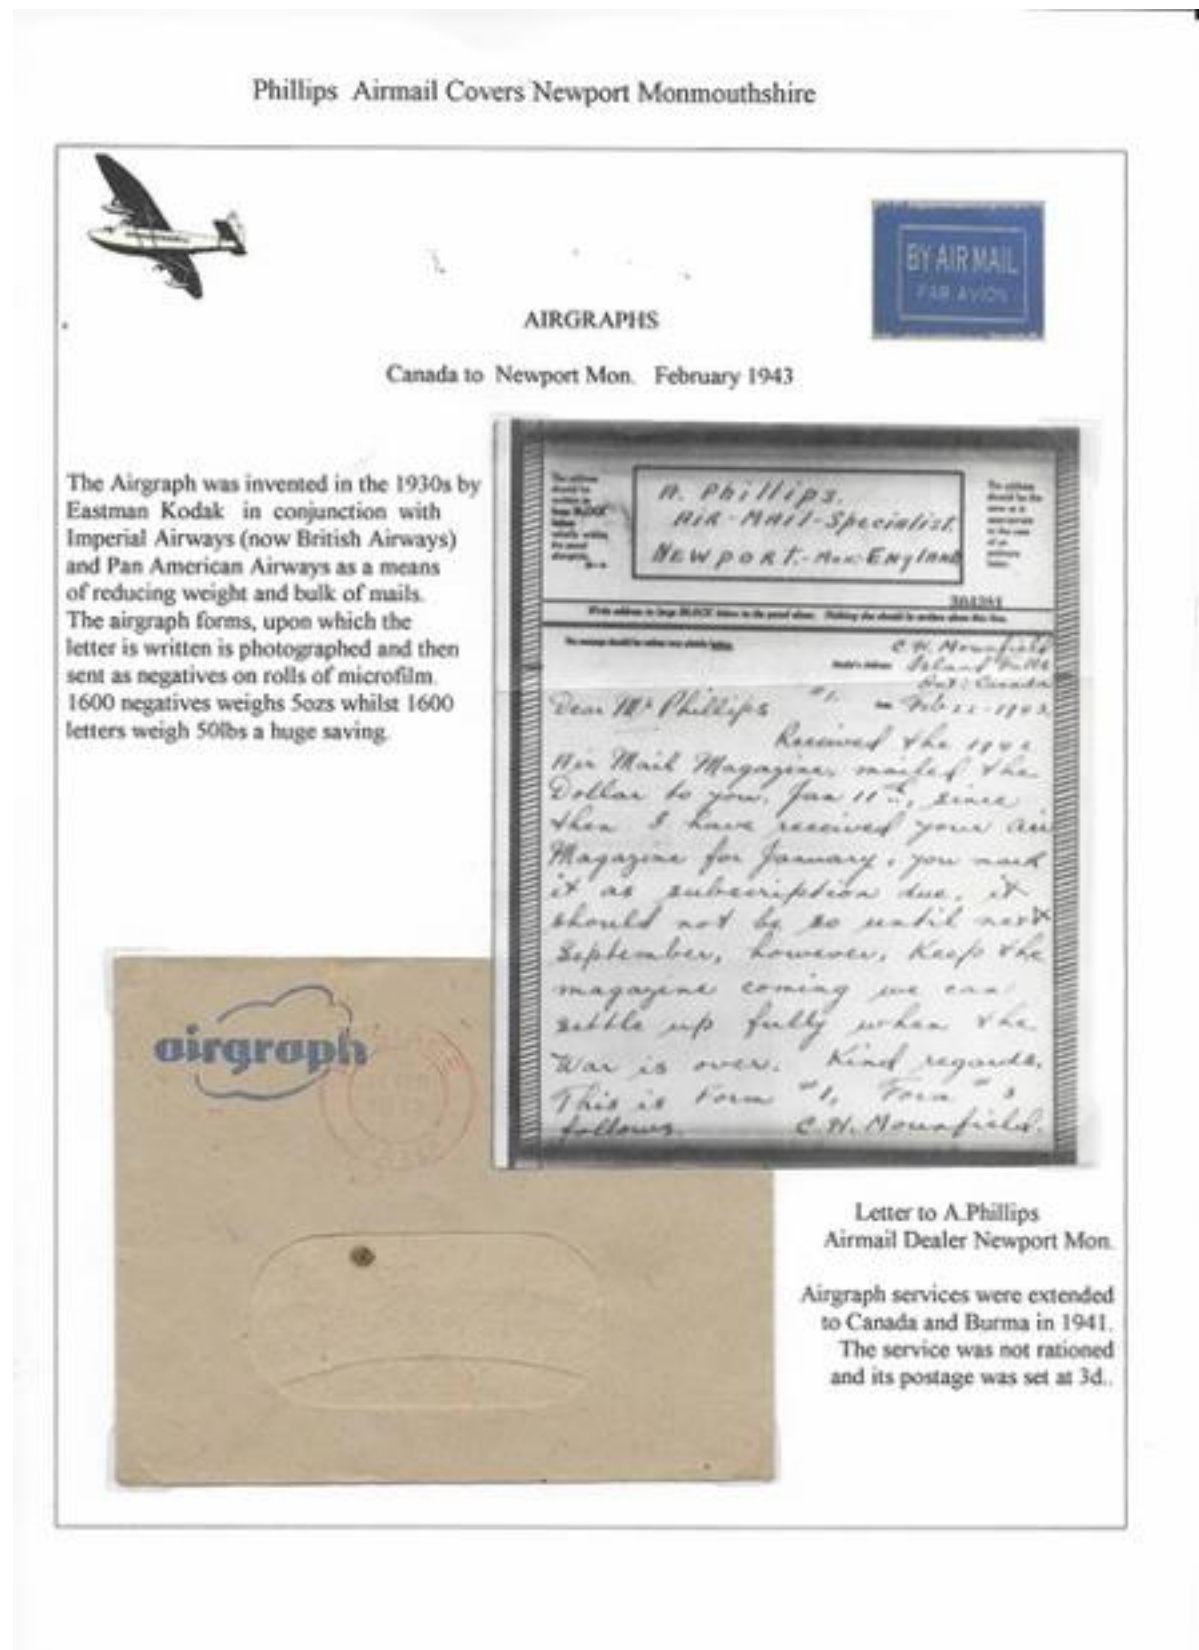 Phillips Airmail Covers Newport Monmouthshire
BY AIR MAIL
PAR AVION
AIRGRAPHS
Canada to Newport Mon. February 1943
The Airgraph was invented in the 1930s by
Eastman Kodak in conjunction with
Imperial Airways (now British Airways)
and Pan American Airways as a means
of reducing weight and bulk of mails.
The airgraph forms, upon which the
letter is written is photographed and then
sent as negatives on rolls of microfilm.
1600 negatives weighs 5ozs whilst 1600
letters weigh 50lbs a huge saving.
A. Phillips.
AIR-MAIL-Specialist.
NEWPORT.-Mon-ENgland
Write address in large BLOCK letters in the panel above. Nothing else should be written above this line.
C. H. Mounfield
Island Falls
Ont: Canada
Dear Mr Phillips #1.
Received the
Air Mail Magazine, mailed the
Dollar to you, Jan 11th, since
then I have received your Air
Magazine for January, you mark
it as subscription due, it
should not be so until next
September, however, Keep the
magazine coming we can
settle up fully when the
War is over. Kind regards.
This is Form #1, Form #
follows. C.H. Mounfield.
airgraph
Letter to A.Phillips
Airmail Dealer Newport Mon.
Airgraph services were extended
to Canada and Burma in 1941.
The service was not rationed
and its postage was set at 3d..